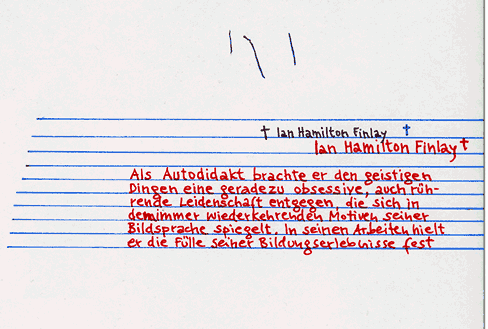 † Ian Hamilton Finlay †
Ian Hamilton Finlay †
Als Autodidakt brachte er den geistigen
Dingen eine geradezu obsessive, auch rüh-
rende Leidenschaft entgegen, die sich in
dem immer wiederkehrenden Motiven seiner
Bildsprache spiegelt. In seinen Arbeiten hielt
er die Fülle seiner Bildungserlebnisse fest